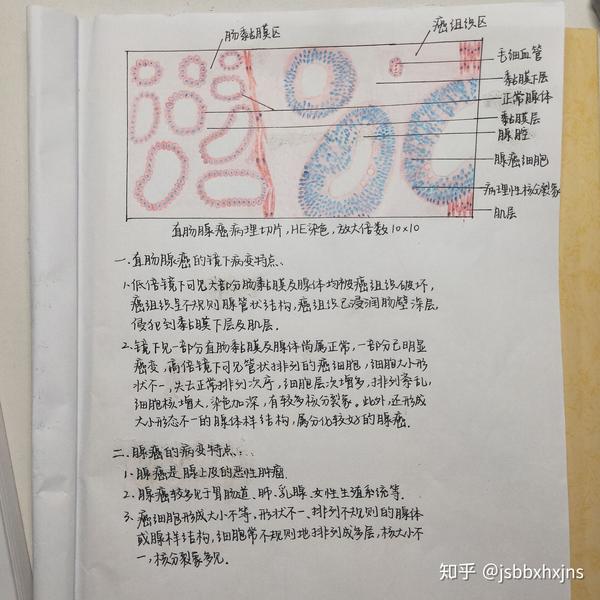 肠黏膜区
癌组织区
毛细血管
黏膜下层
正常腺体
黏膜层
腺腔
腺癌细胞
病理性核分裂象
肌层
直肠腺癌病理切片,HE染色,放大倍数10×10
一、直肠腺癌的镜下病变特点:
1、低倍镜下可见大部分肠黏膜及腺体均被癌组织破坏,
癌组织呈不规则腺管状结构,癌组织已浸润肠壁深层,
侵犯到黏膜下层及肌层.
2、镜下见一部分直肠黏膜及腺体尚属正常,一部分已明显
癌变,高倍镜下可见管状排列的癌细胞,细胞大小形
状不一,失去正常排列次序,细胞层次增多,排列紊乱,
细胞核增大,染色加深,有较多核分裂象。此外,还形成
大小形态不一的腺体样结构,属分化较好的腺癌.
二、腺癌的病变特点:
1、腺癌是腺上皮的恶性肿瘤.
2、腺癌较多见于胃肠道、肺、乳腺、女性生殖系统等.
3、癌细胞形成大小不等、形状不一、排列不规则的腺体
或腺样结构,细胞常不规则地排列成多层,核大小不
一,核分裂象多见.
知乎 @jsbbxhxjns